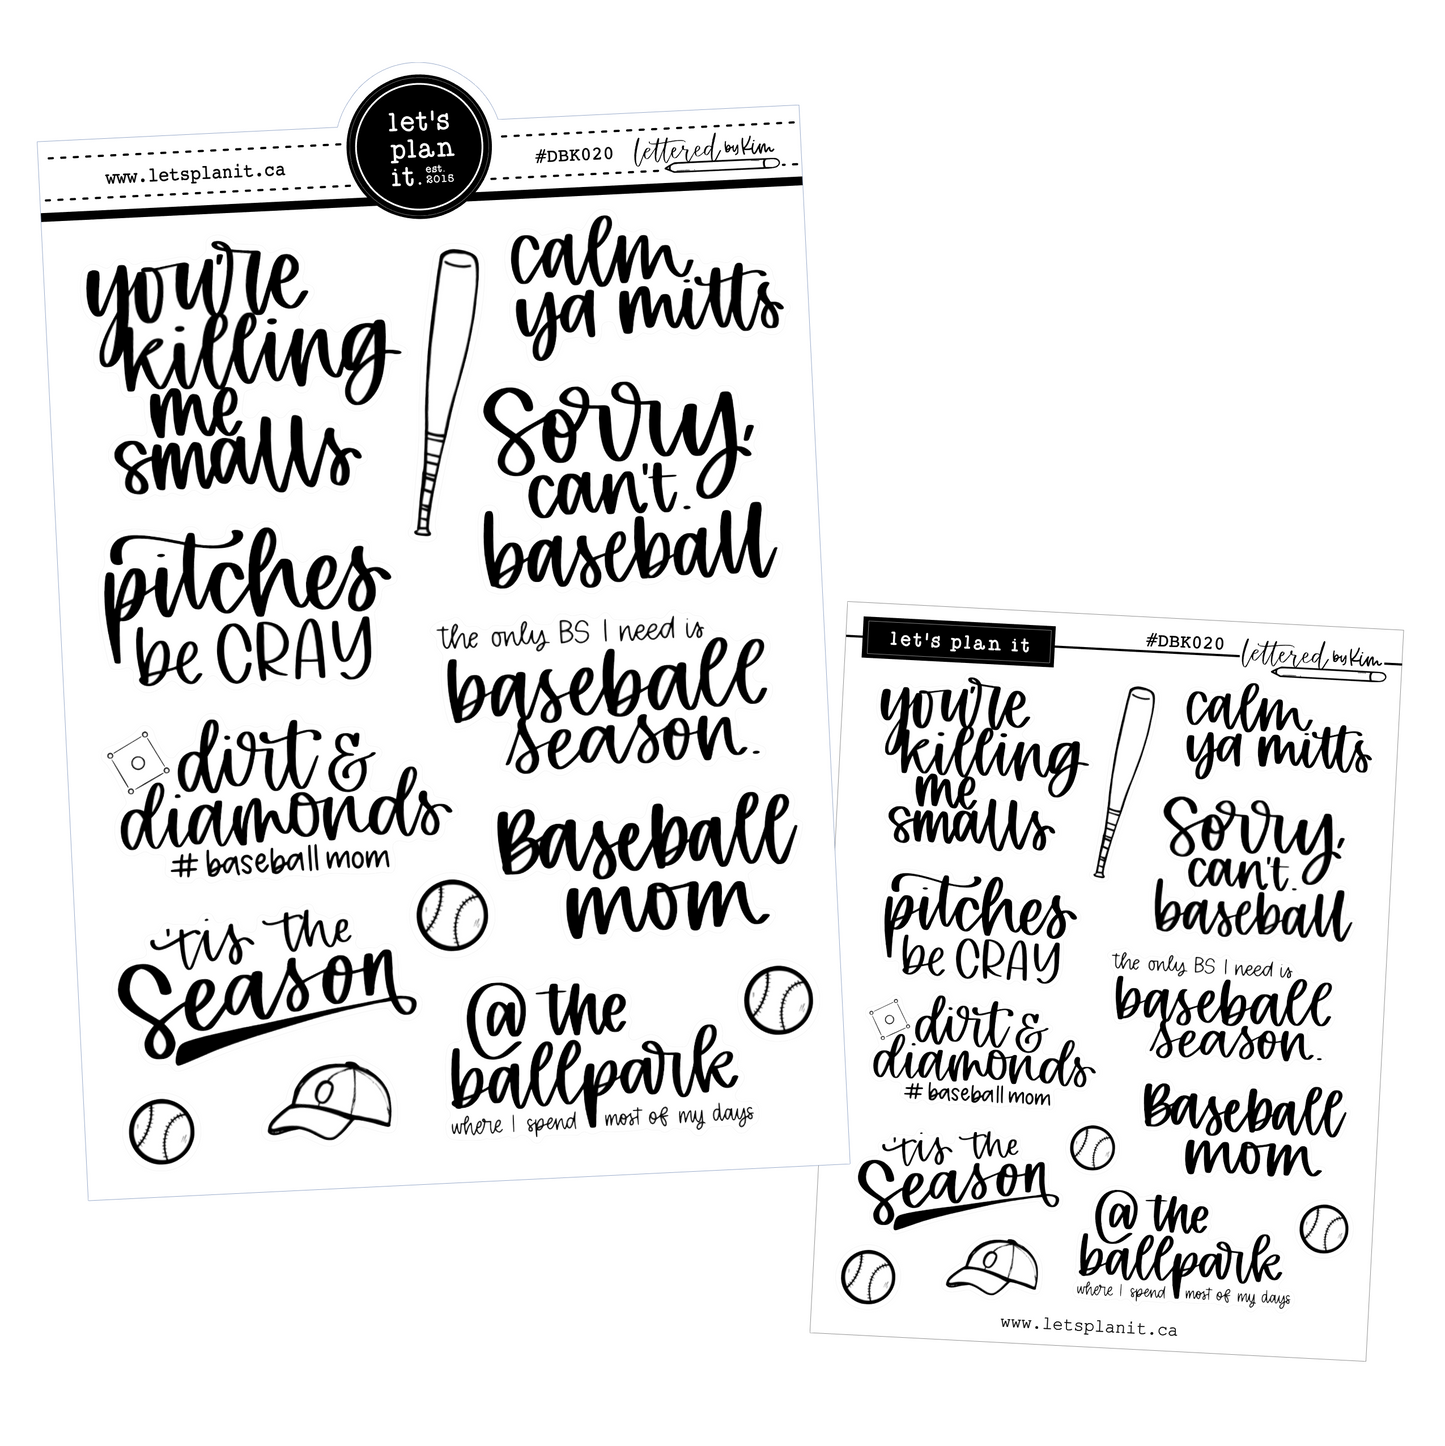 www.letsplanit.ca
let's
plan
it. est. 2015
#DBK020
lettered by Kim
you're
killing
me
smalls
calm
ya mitts
Sorry,
can't.
baseball
pitches
be CRAY
the only BS I need is
baseball
season.
dirt &
diamonds
# baseball mom
Baseball
mom
'tis the
Season
@ the
ballpark
where I spend most of my days
let's plan it
#DBK020
lettered by Kim
you're
killing
me
smalls
calm
ya mitts
Sorry,
can't.
baseball
pitches
be CRAY
the only BS I need is
baseball
season.
dirt &
diamonds
# baseball mom
Baseball
mom
'tis the
Season
@ the
ballpark
where I spend most of my days
www.letsplanit.ca